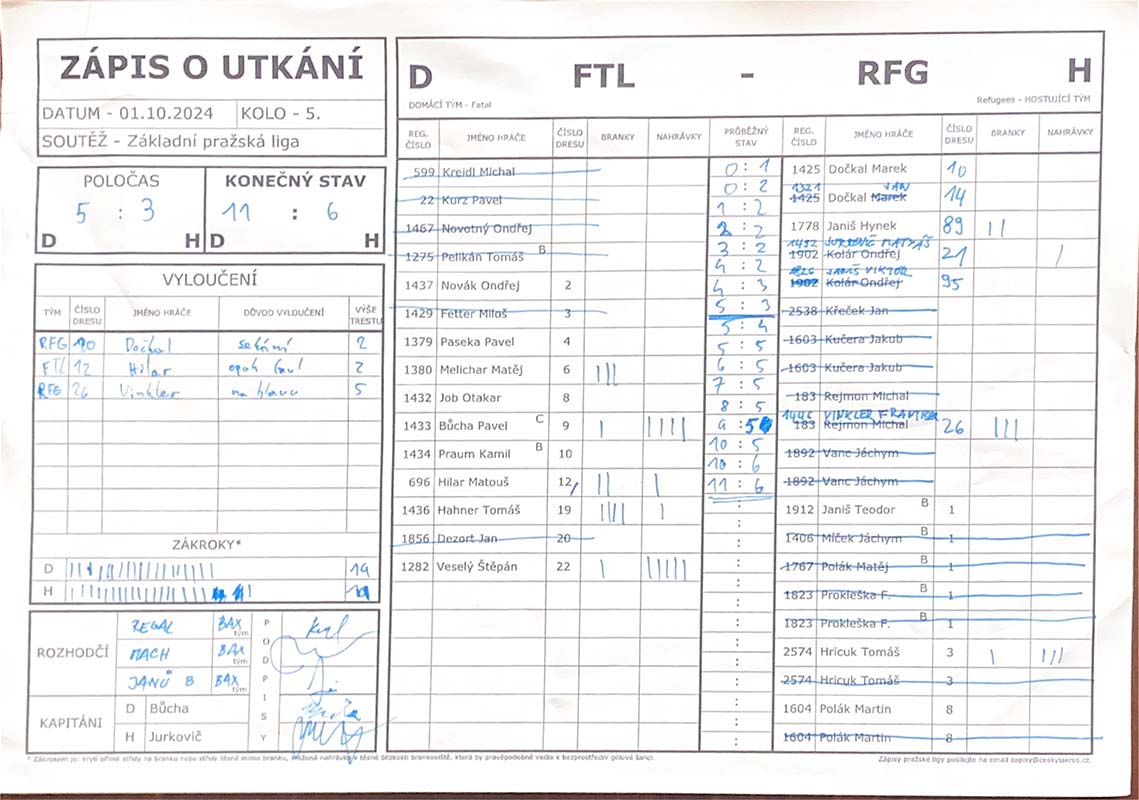 ZÁPIS O UTKÁNÍ
DATUM - 01.10.2024 KOLO - 5.
SOUTĚŽ - Základní pražská liga
POLOČAS
5 : 3
D H
KONEČNÝ STAV
11 : 6
D H
VYLOUČENÍ
TÝM ČÍSLO DRESU JMÉNO HRÁČE DŮVOD VYLOUČENÍ VÝŠE TRESTU
RFG 10 Dočkal sekání 2
FTL 12 Hilar opak faul 2
RFG 26 Vinkler na hlavu 5
ZÁKROKY*
D 14
H
ROZHODČÍ
REGAL BAX tým
MACH BAX tým
JANŮ B BAX tým
PODPISY
KAPITÁNI
D Bůcha
H Jurkovič
D FTL - RFG H
DOMÁCÍ TÝM - Fatal Refugees - HOSTUJÍCÍ TÝM
REG. ČÍSLO JMÉNO HRÁČE ČÍSLO DRESU BRANKY NAHRÁVKY PRŮBĚŽNÝ STAV REG. ČÍSLO JMÉNO HRÁČE ČÍSLO DRESU BRANKY NAHRÁVKY
599 Kreidl Michal 0 : 1 1425 Dočkal Marek 10
22 Kurz Pavel 0 : 2 1321 1425 Dočkal Marek JAN 14
1467 Novotný Ondřej 1 : 2 1778 Janiš Hynek 89 ||
1275 Pelikán Tomáš B 2 : 2 1902 Kolár Ondřej 21 |
3 : 2
1437 Novák Ondřej 2 4 : 2 JANIŠ VIKTOR 1902 Kolár Ondřej 95
4 : 3
1429 Fetter Miloš 3 5 : 3 2538 Křeček Jan
1379 Paseka Pavel 4 5 : 4 1603 Kučera Jakub
5 : 5
1380 Melichar Matěj 6 ||| 6 : 5 1603 Kučera Jakub
1432 Job Otakar 8 7 : 5 183 Rejmon Michal
8 : 5
1433 Bůcha Pavel C 9 | |||| 9 : 5 1446 VINKLER FRANTIŠEK 183 Rejmon Michal 26 |||
1434 Praum Kamil B 10 10 : 5 1892 Vanc Jáchym
10 : 6
696 Hilar Matouš 12 || | 11 : 6 1892 Vanc Jáchym
1436 Hahner Tomáš 19 |||| | : 1912 Janiš Teodor B 1
1856 Dezort Jan 20 : 1406 Míček Jáchym B 1
1282 Veselý Štěpán 22 | ||||| : 1767 Polák Matěj B 1
: 1823 Prokleška F. B 1
: 1823 Prokleška F. B 1
: 2574 Hricuk Tomáš 3 | |||
: 2574 Hricuk Tomáš 3
: 1604 Polák Martin 8
: 1604 Polák Martin 8
Zápisy pražské ligy posílejte na email zapisy@ceskylakros.cz.